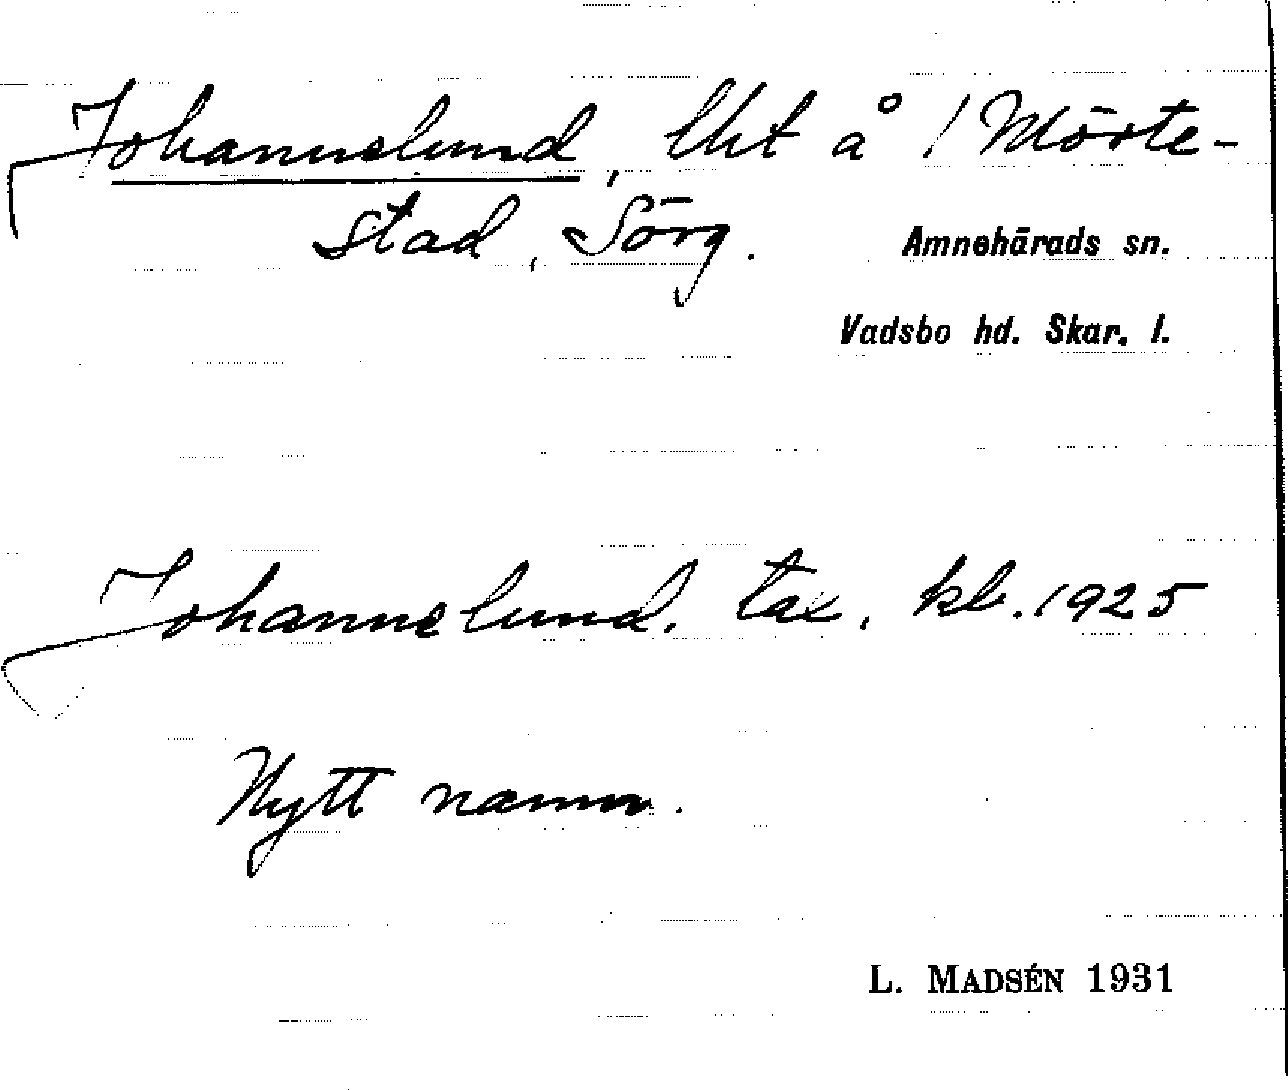 Johanneslund, lht å / Mörte-
stad, Sörg.
Amnehärads sn.
Vadsbo hd. Skar. l.
Johanneslund. tax. kl. 1925
Nytt namn.
L. MADSÉN 1931